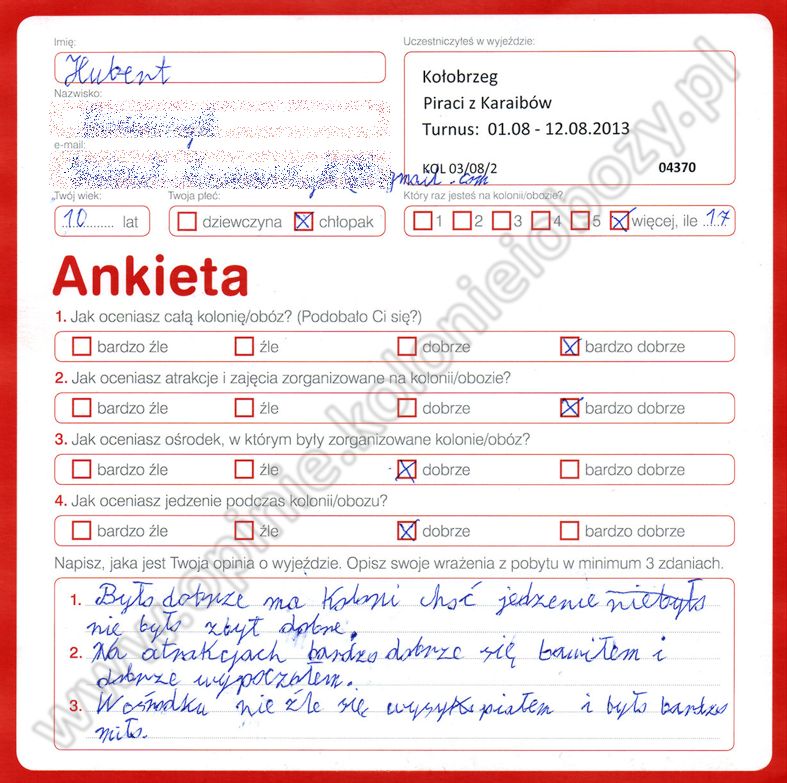 Imię:
Uczestniczyłeś w wyjeździe:
Hubert
Kołobrzeg
Piraci z Karaibów
Turnus: 01.08 - 12.08.2013
KOL 03/08/2 04370
Nazwisko:
e-mail:
gmail.com
Twój wiek: Twoja płeć: Który raz jesteś na kolonii/obozie?
10 lat dziewczyna chłopak 1 2 3 4 5 więcej, ile 17
Ankieta
1. Jak oceniasz całą kolonię/obóz? (Podobało Ci się?)
bardzo źle źle dobrze bardzo dobrze
2. Jak oceniasz atrakcje i zajęcia zorganizowane na kolonii/obozie?
bardzo źle źle dobrze bardzo dobrze
3. Jak oceniasz ośrodek, w którym były zorganizowane kolonie/obóz?
bardzo źle źle dobrze bardzo dobrze
4. Jak oceniasz jedzenie podczas kolonii/obozu?
bardzo źle źle dobrze bardzo dobrze
Napisz, jaka jest Twoja opinia o wyjeździe. Opisz swoje wrażenia z pobytu w minimum 3 zdaniach.
1. Było dobrze na Koloni choć jedzenie niebyło
nie było zbyt dobre.
2. Na atrakcjach bardzo dobrze się bawiłem i
dobrze wypocząłem.
3. W ośrodku nie źle się i było bardzo
miło.
www.opinie.kolonieiobozy.pl